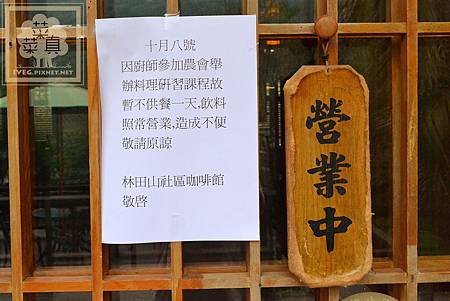 十月八號
因廚師參加農會舉
辦料理研習課程故
暫不供餐一天,飲料
照常營業,造成不便
敬請原諒
林田山社區咖啡館
敬啓
營業中
菜真
菜
EVEG.PIXNET.NET